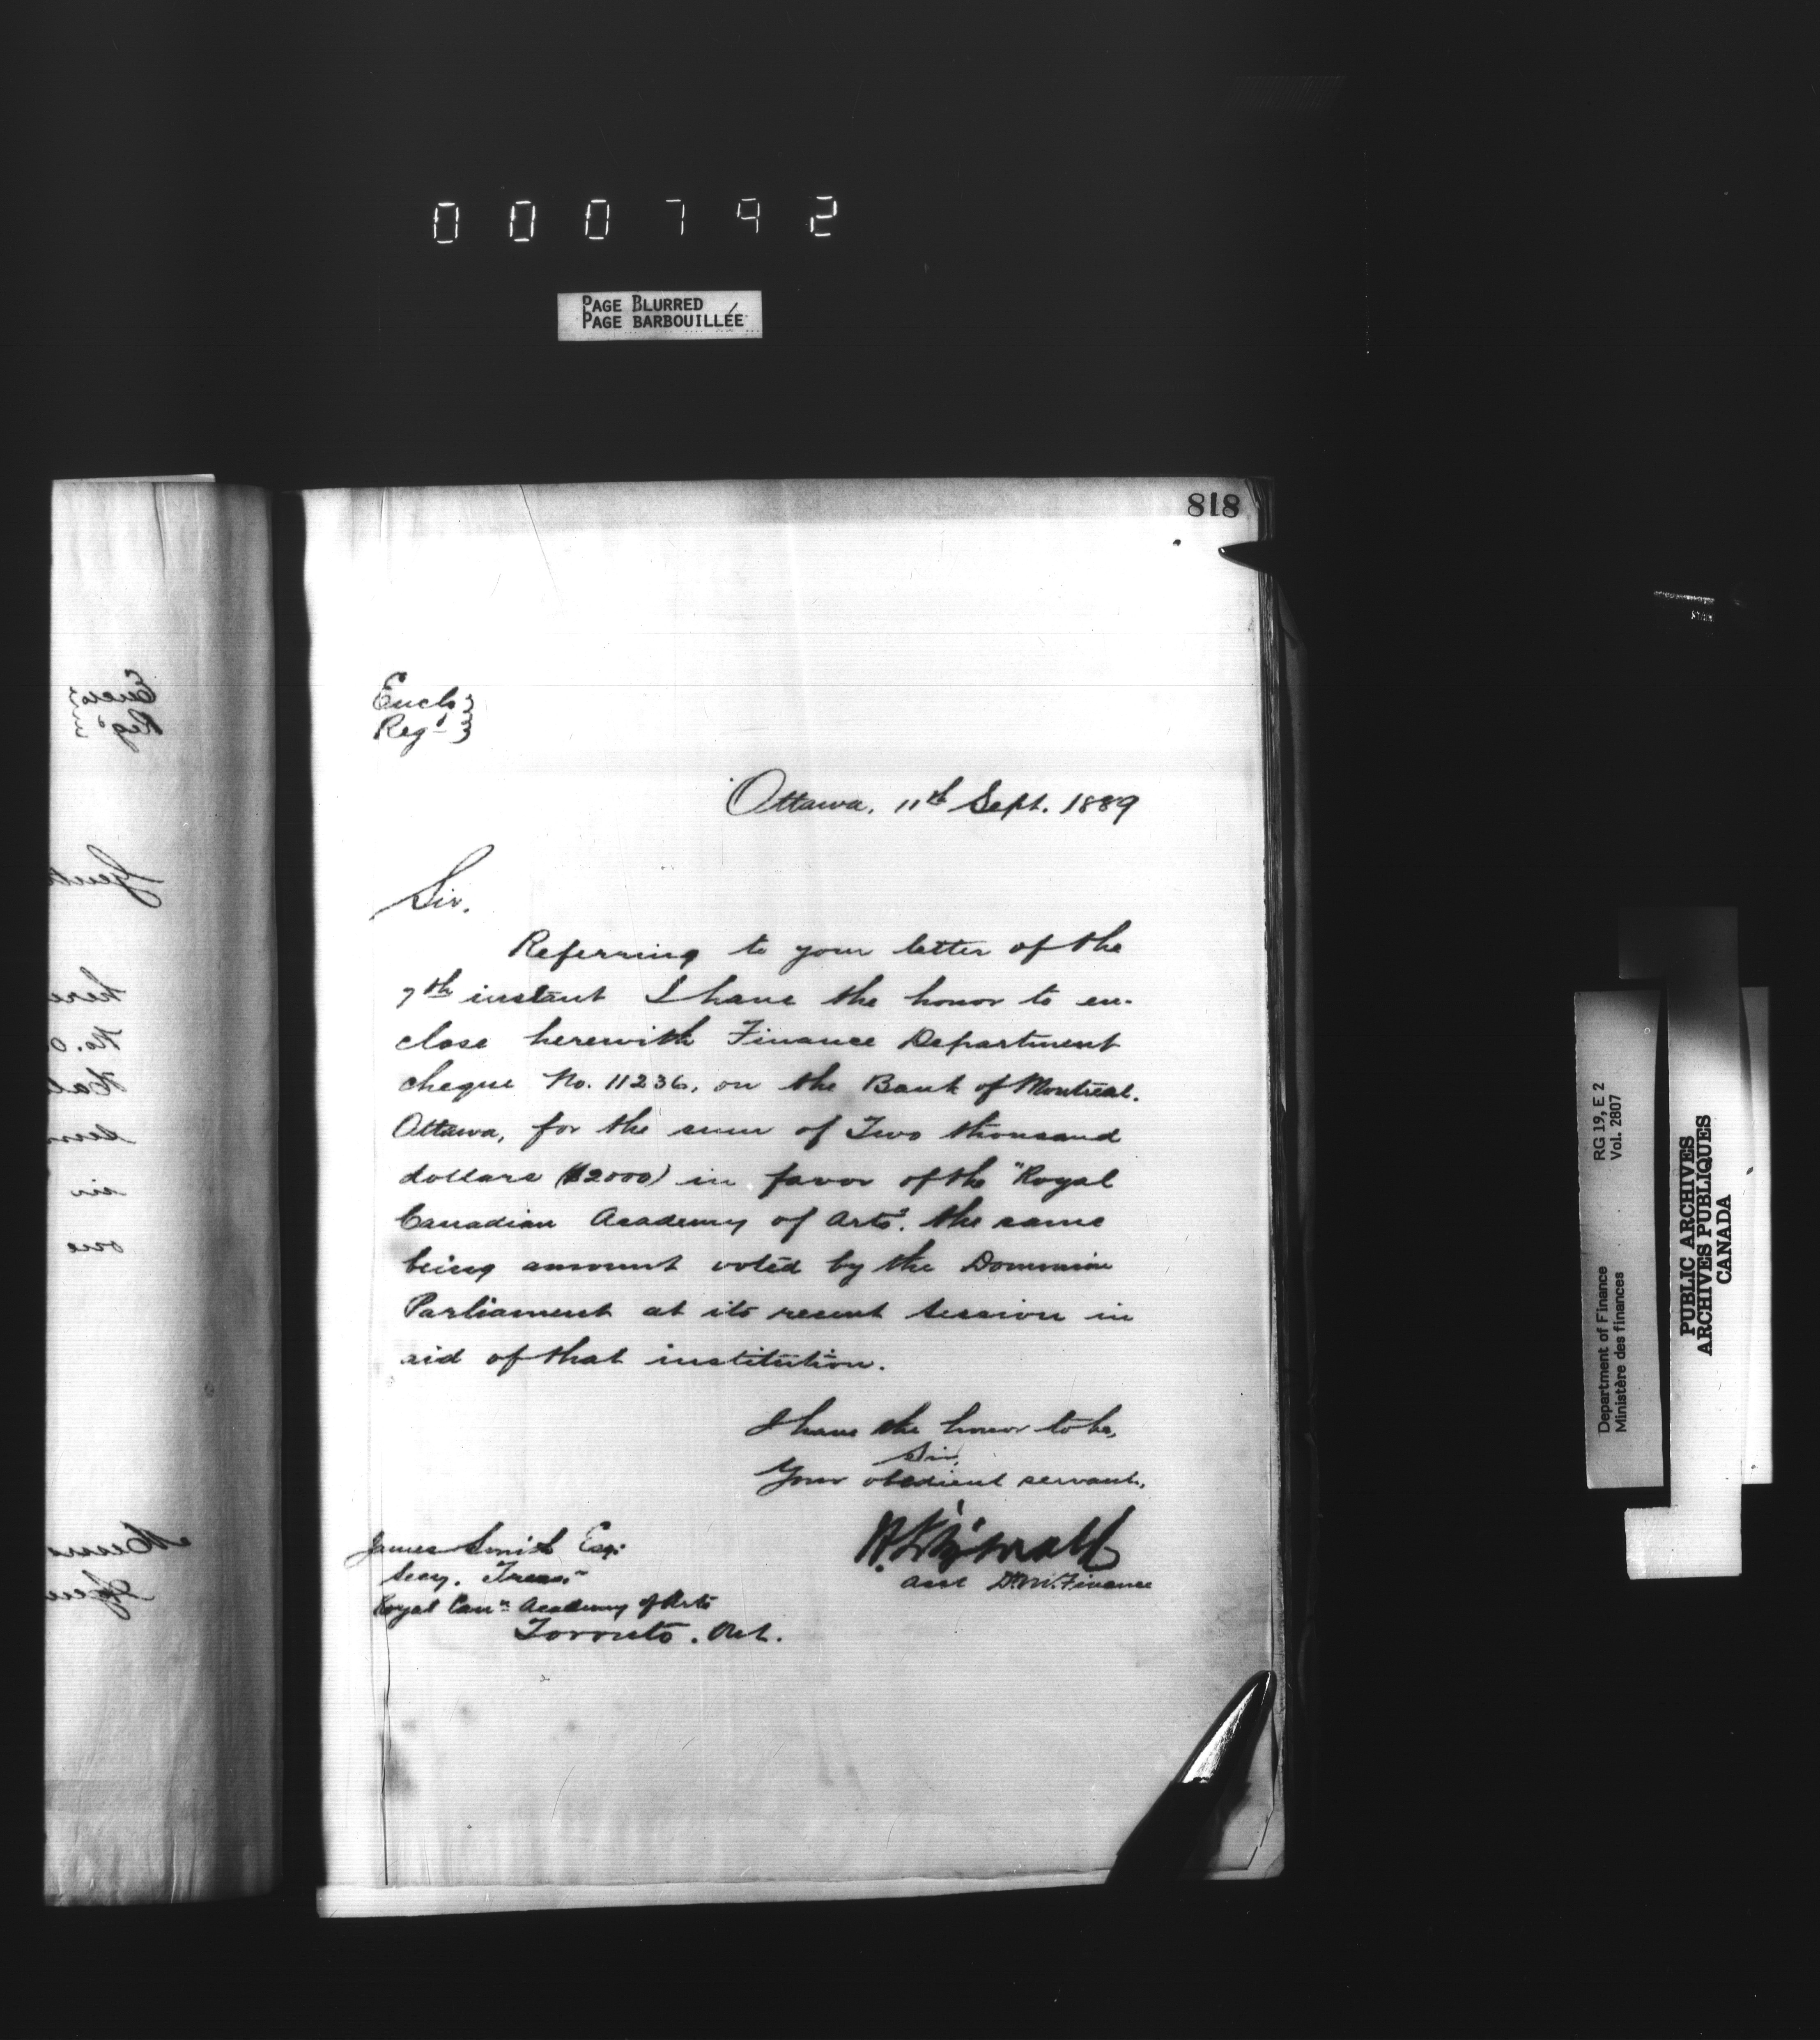 000792
PAGE BLURRED
PAGE BARBOUILLÉE
818
Encls
Regd
Ottawa, 11th Sept. 1889
Sir,
Referring to your letter of the
7th instant I have the honor to en-
close herewith Finance Department
cheque No. 11236, on the Bank of Montreal.
Ottawa, for the sum of Two thousand
dollars ($2000) in favor of the "Royal
Canadian Academy of Arts", the same
being amount voted by the Dominion
Parliament at its recent session in
aid of that institution.
I have the honor to be,
Sir,
Your obedient servant,
Asst D.M. Finance
James Smith Esq:
Secy. Treasr
Royal Cann Academy of Arts
Toronto. Ont.
RG 19, E 2
Vol. 2807
Department of Finance
Ministère des finances
PUBLIC ARCHIVES
ARCHIVES PUBLIQUES
CANADA